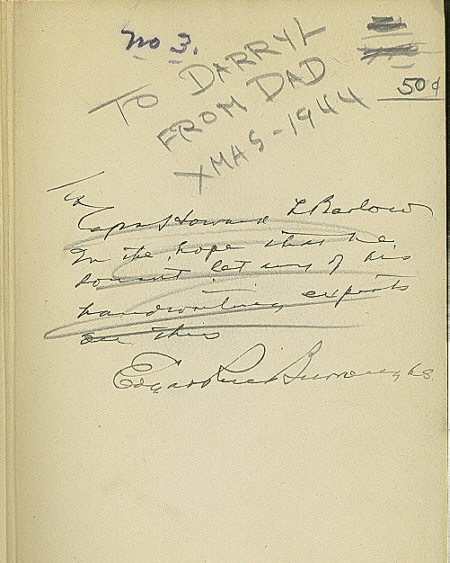 No 3.
50¢
TO DARRYL
FROM DAD
XMAS-1944
To
Capt Howard L Barlow
In the hope that he
doesn't let any of his
handwriting experts
see this
Edgar Rice Burroughs